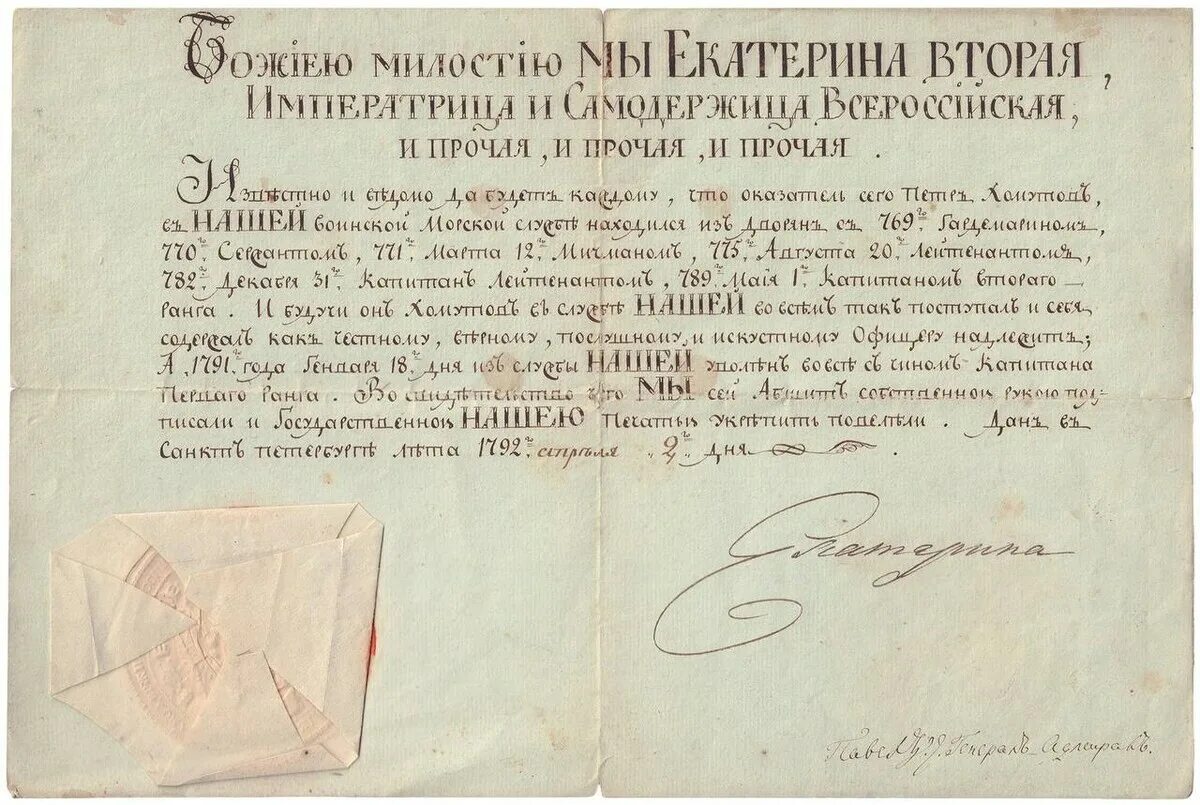 Божіею милостію МЫ ЕКАТЕРИНА ВТОРАЯ,
Императрица и Самодержица Всероссійская,
и прочая, и прочая, и прочая.
Извѣстно и вѣдомо да будетъ каждому, что оказатель сего Петръ Хомутовъ,
въ НАШЕЙ воинской Морской службѣ находился изъ дворянъ съ 769го Гардемариномъ,
770го Сержантомъ, 771го Марта 12го Мичманомъ, 775го Августа 20го Лейтенантомъ,
782го Декабря 31го Капитанъ Лейтенантомъ, 789го Маія 1го Капитаномъ втораго
ранга. И будучи онъ Хомутовъ въ службѣ НАШЕЙ во всѣмъ такъ поступалъ и себя
содержалъ какъ честному, вѣрному, послушному, и искустному Офицеру надлежитъ;
А, 1791го года Генваря 18го дня изъ службы НАШЕЙ уволѣнъ вовсѣ съ чиномъ Капитана
Перваго ранга. Во свидѣтельство чего МЫ сей Абшитъ собственною рукою под-
писали и Государственною НАШЕЮ Печатью укрѣпить повелѣли. Данъ въ
Санктъ петербургѣ лѣта 1792го апрѣля 2го дня.
Екатерина
Павел Генералъ Адмиралъ.